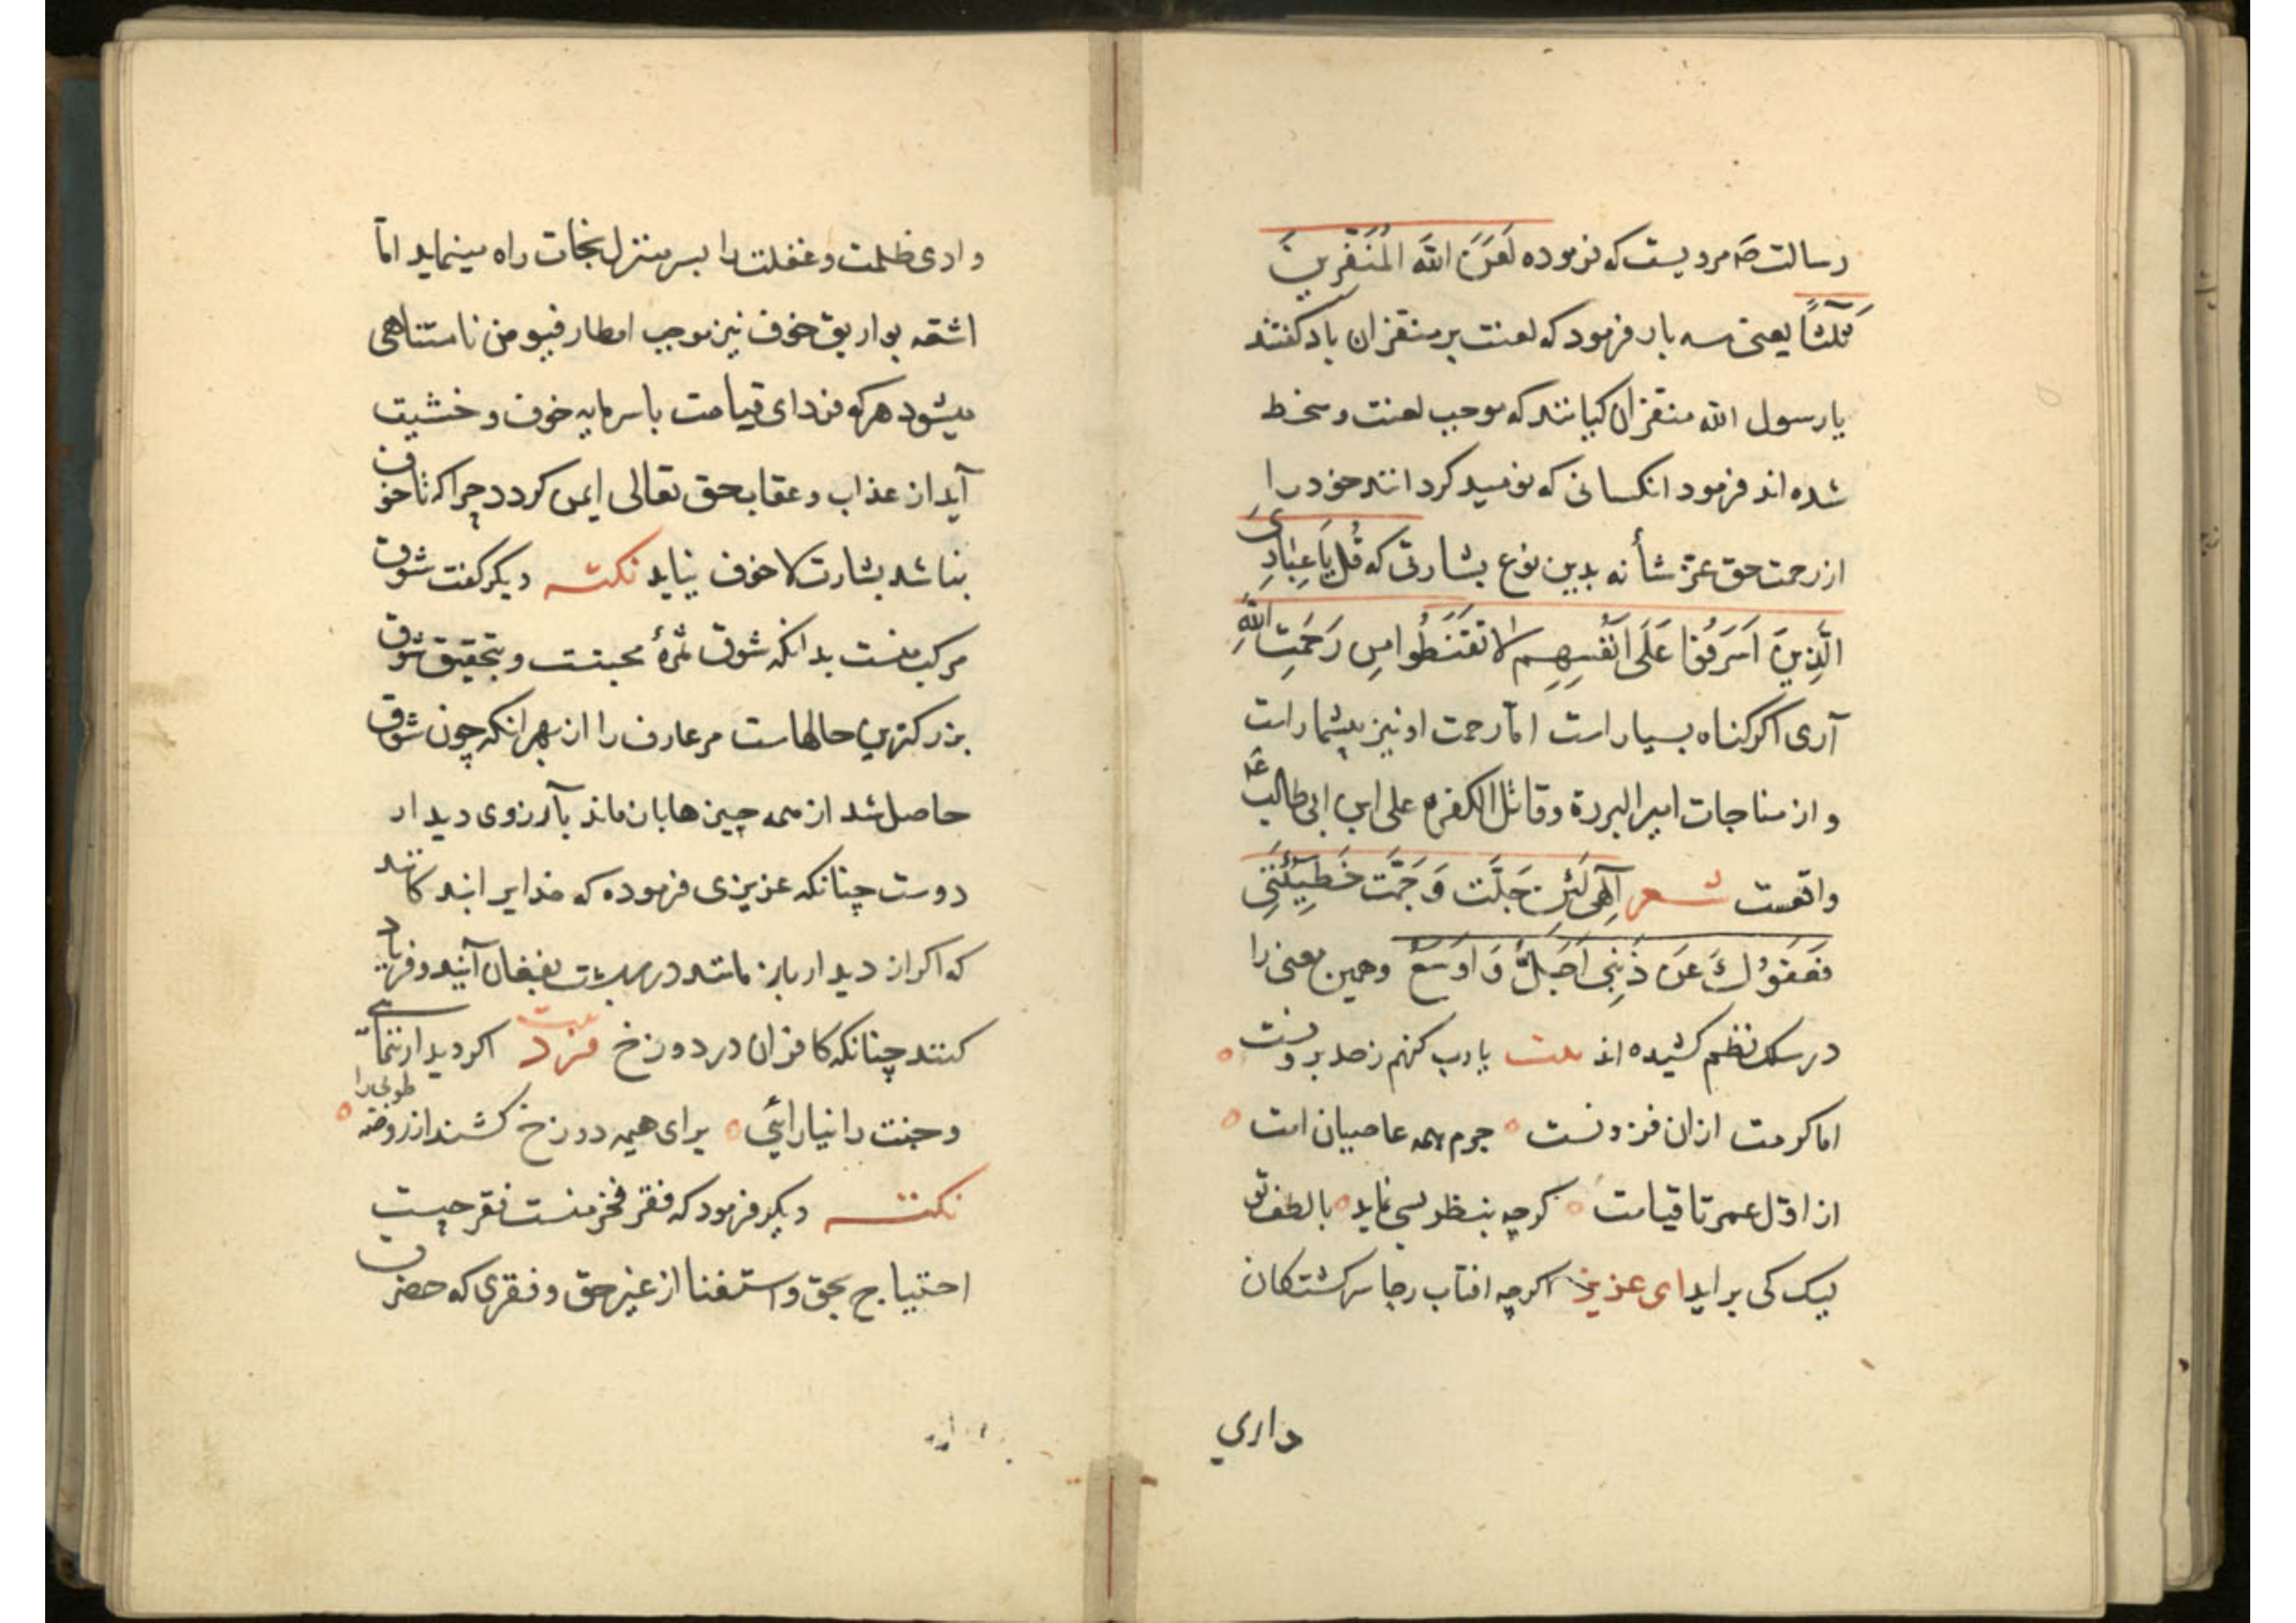 رسالت صم مرویست که فرموده لَعَنَ اللّهَ المُنَفِّرِینَ
ثَلٰثاً یعنی سه بار فرمود که لعنت بر منفران باد کفتند
یا رسول الله منفران کیانند که موجب لعنت و سخط
شده اند فرمود انکسانی که نومید کردانند خود را
از رحمت حق عزّ شأنه بدین نوع بشارتی که قُل یَا عِبَادِیَ
الَّذِینَ اَسرَفُوا عَلَی اَنفُسِهِم لَا تَقنَطُوا مِن رَحمَتِ اللّهِ
آری اکر کناه بسیار است امّا رحمت او نیز بیشمار است
و از مناجات امیر البررة و قاتل الکفره علی ابن ابی طالب عم
واقعست شعر اِلٰهِی لَئِن جَلَّت وَ جَمَّت خَطِیئَتِی
فَعَفوُكَ عَن ذَنبِی اَجَلُّ وَ اَوسَعُ و همین معنی را
در سلک نظم کشیده اند بیت یا رب کنهم ز حد برونست
اما کرمت ازان فزونست جرم همه عاصیان امت
از اوّل عمر تا قیامت کرچه بنظر بسی نماید با لطف تو
لیک کی براید ای عزیز اکرچه افتاب رجا سرکشتکان
داری
وادی ظلمت و غفلت را بسر منزل نجات راه مینماید امّا
اشعه بواریق خوف نیز موجب امطار فیوض نامتناهی
میشود هرکه فردای قیامت با سرمایه خوف و خشیت
آید از عذاب و عقاب حق تعالی ایمن کردد چرا که تا خوف
نباشد بشارت لا خوف نیاید نکته دیکر کفت شوق
مرکب منست بدانکه شوق ثمرهٔ محبتت و بتحقیق شوق
بزرکترین حالهاست مر عارف را از بهر انکه چون شوق
حاصل شد از همه چیزها بازماند بآرزوی دیدار
دوست چنانکه عزیزی فرموده که خدایرا بندکانند
که اکر از دیدار باز مانند در بهشت بفغان آیند و فریاد
کنند چنانکه کافران در دوزخ فرد بیت اکر دیدار ننمائی
و جنت را نیارائی برای هیمه دوزخ کشند از روضه طوبی را
نکته دیکر فرمود که فقر فخر منست فقر چیست
احتیاج بحق و استغنا از غیر حق و فقری که حضرت